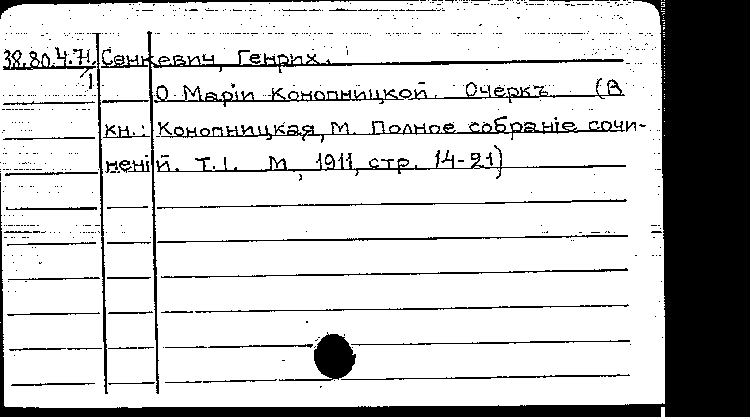 38.80.4.71. Сенкевич, Генрих.
1
О Марiи Конопницкой. Очеркъ (В
кн.: Конопницкая, М. Полное собранiе сочи-
ненiй. Т.I. М, 1911, стр. 14-21)